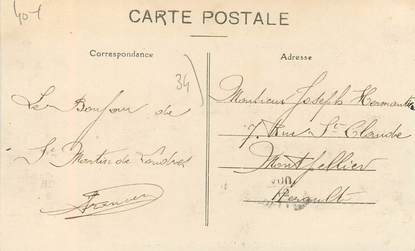 401
CARTE POSTALE
Correspondance
Adresse
34
Le Bonjour de
St Martin de Londres
Monsieur Joseph
7 Rue St Claude
Montpellier
Herault